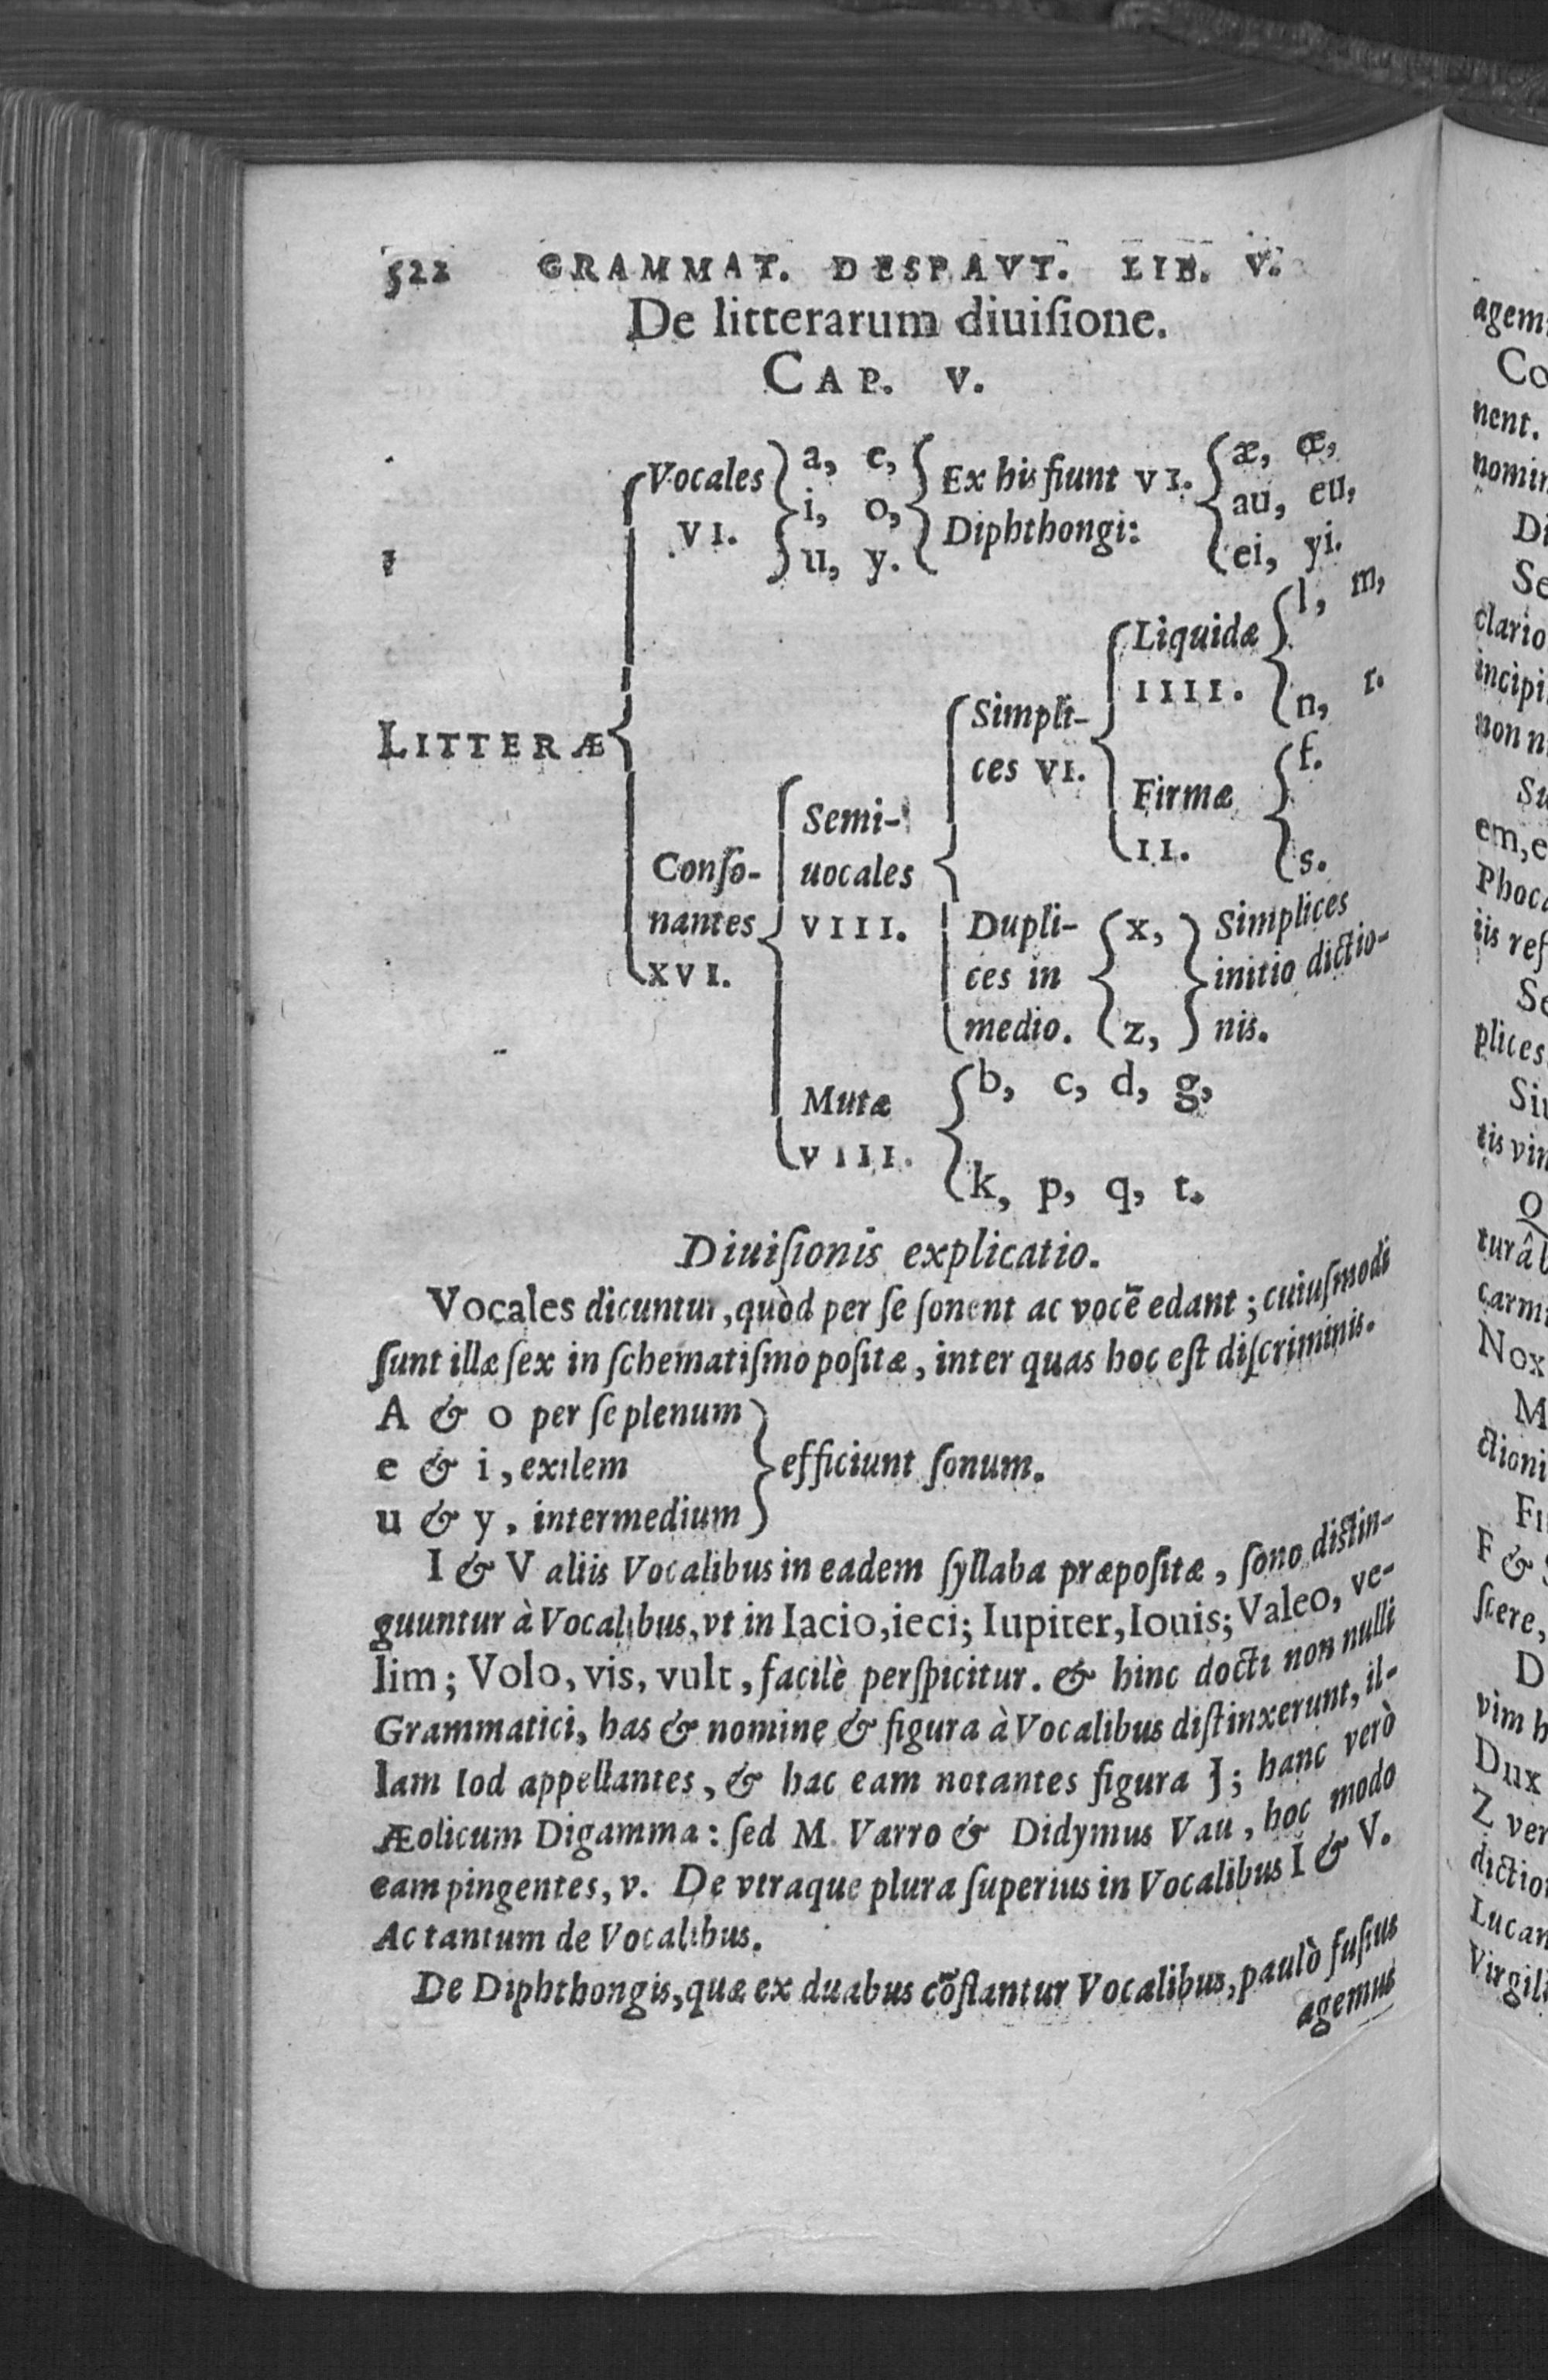 522 GRAMMAT. DESPAVT. LIB. V.
De litterarum diuiſione.
CAP. V.
Vocales VI. a, e, i, o, u, y. Ex his fiunt VI. Diphthongi: æ, œ, au, eu, ei, yi.
LITTERÆ
Conſo-
nantes
XVI.
Semi-
uocales
VIII.
Simpli-
ces VI.
Liquidæ
IIII.
l, m,
n, r.
Firmæ
II.
f.
s.
Dupli-
ces in
medio.
x,
z,
Simplices
initio dictio-
nis.
Mutæ
VIII.
b, c, d, g,
k, p, q, t.
Diuiſionis explicatio.
Vocales dicuntur, quòd per ſe ſonent ac vocē edant; cuiuſmodi
ſunt illæ ſex in ſchematiſmo poſitæ, inter quas hoc eſt diſcriminis.
A & o per ſe plenum
e & i, exilem
u & y, intermedium
efficiunt ſonum.
I & V aliis Vocalibus in eadem ſyllaba præpoſitæ, ſono diſtin-
guuntur à Vocalibus, vt in Iacio, ieci; Iupiter, Iouis; Valeo, ve-
lim; Volo, vis, vult, facilè perſpicitur. & hinc docti non nulli
Grammatici, has & nomine & figura à Vocalibus diſtinxerunt, il-
lam Iod appellantes, & hac eam notantes figura J; hanc verò
Æolicum Digamma: ſed M. Varro & Didymus Vau, hoc modo
eam pingentes, v. De vtraque plura ſuperius in Vocalibus I & V.
Ac tantum de Vocalibus.
De Diphthongis, quæ ex duabus cōſtantur Vocalibus, paulò fuſius
agemus
agem
Co
nent.
Di
Se
clario
incipi
non n
Su
em, e
iis reſ
Se
plices
tis vin
Q
carm
Nox
M
ctioni
F &
ſcere,
D
vim h
Dux
Z ver
dictio
Lucan
Virgili